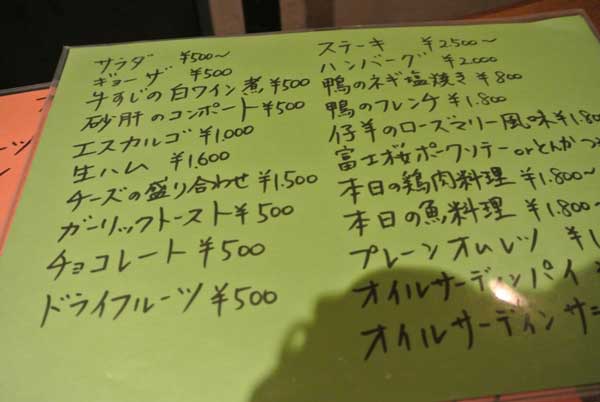 サラダ ¥500〜
ギョーザ ¥500
牛すじの白ワイン煮 ¥500
砂肝のコンポート ¥500
エスカルゴ ¥1,000
生ハム ¥1,600
チーズの盛り合わせ ¥1,500
ガーリックトースト ¥500
チョコレート ¥500
ドライフルーツ ¥500
ステーキ ¥2500〜
ハンバーグ ¥2,000
鴨のネギ塩焼き ¥800
鴨のフレンチ ¥1.800
仔羊のローズマリー風味 ¥1.80
富士桜ポークソテー orとんかつ
本日の鶏肉料理 ¥1.800〜
本日の魚料理 ¥1.800〜
プレーンオムレツ ¥1
オイルサーディンパイ
オイルサーディンサ